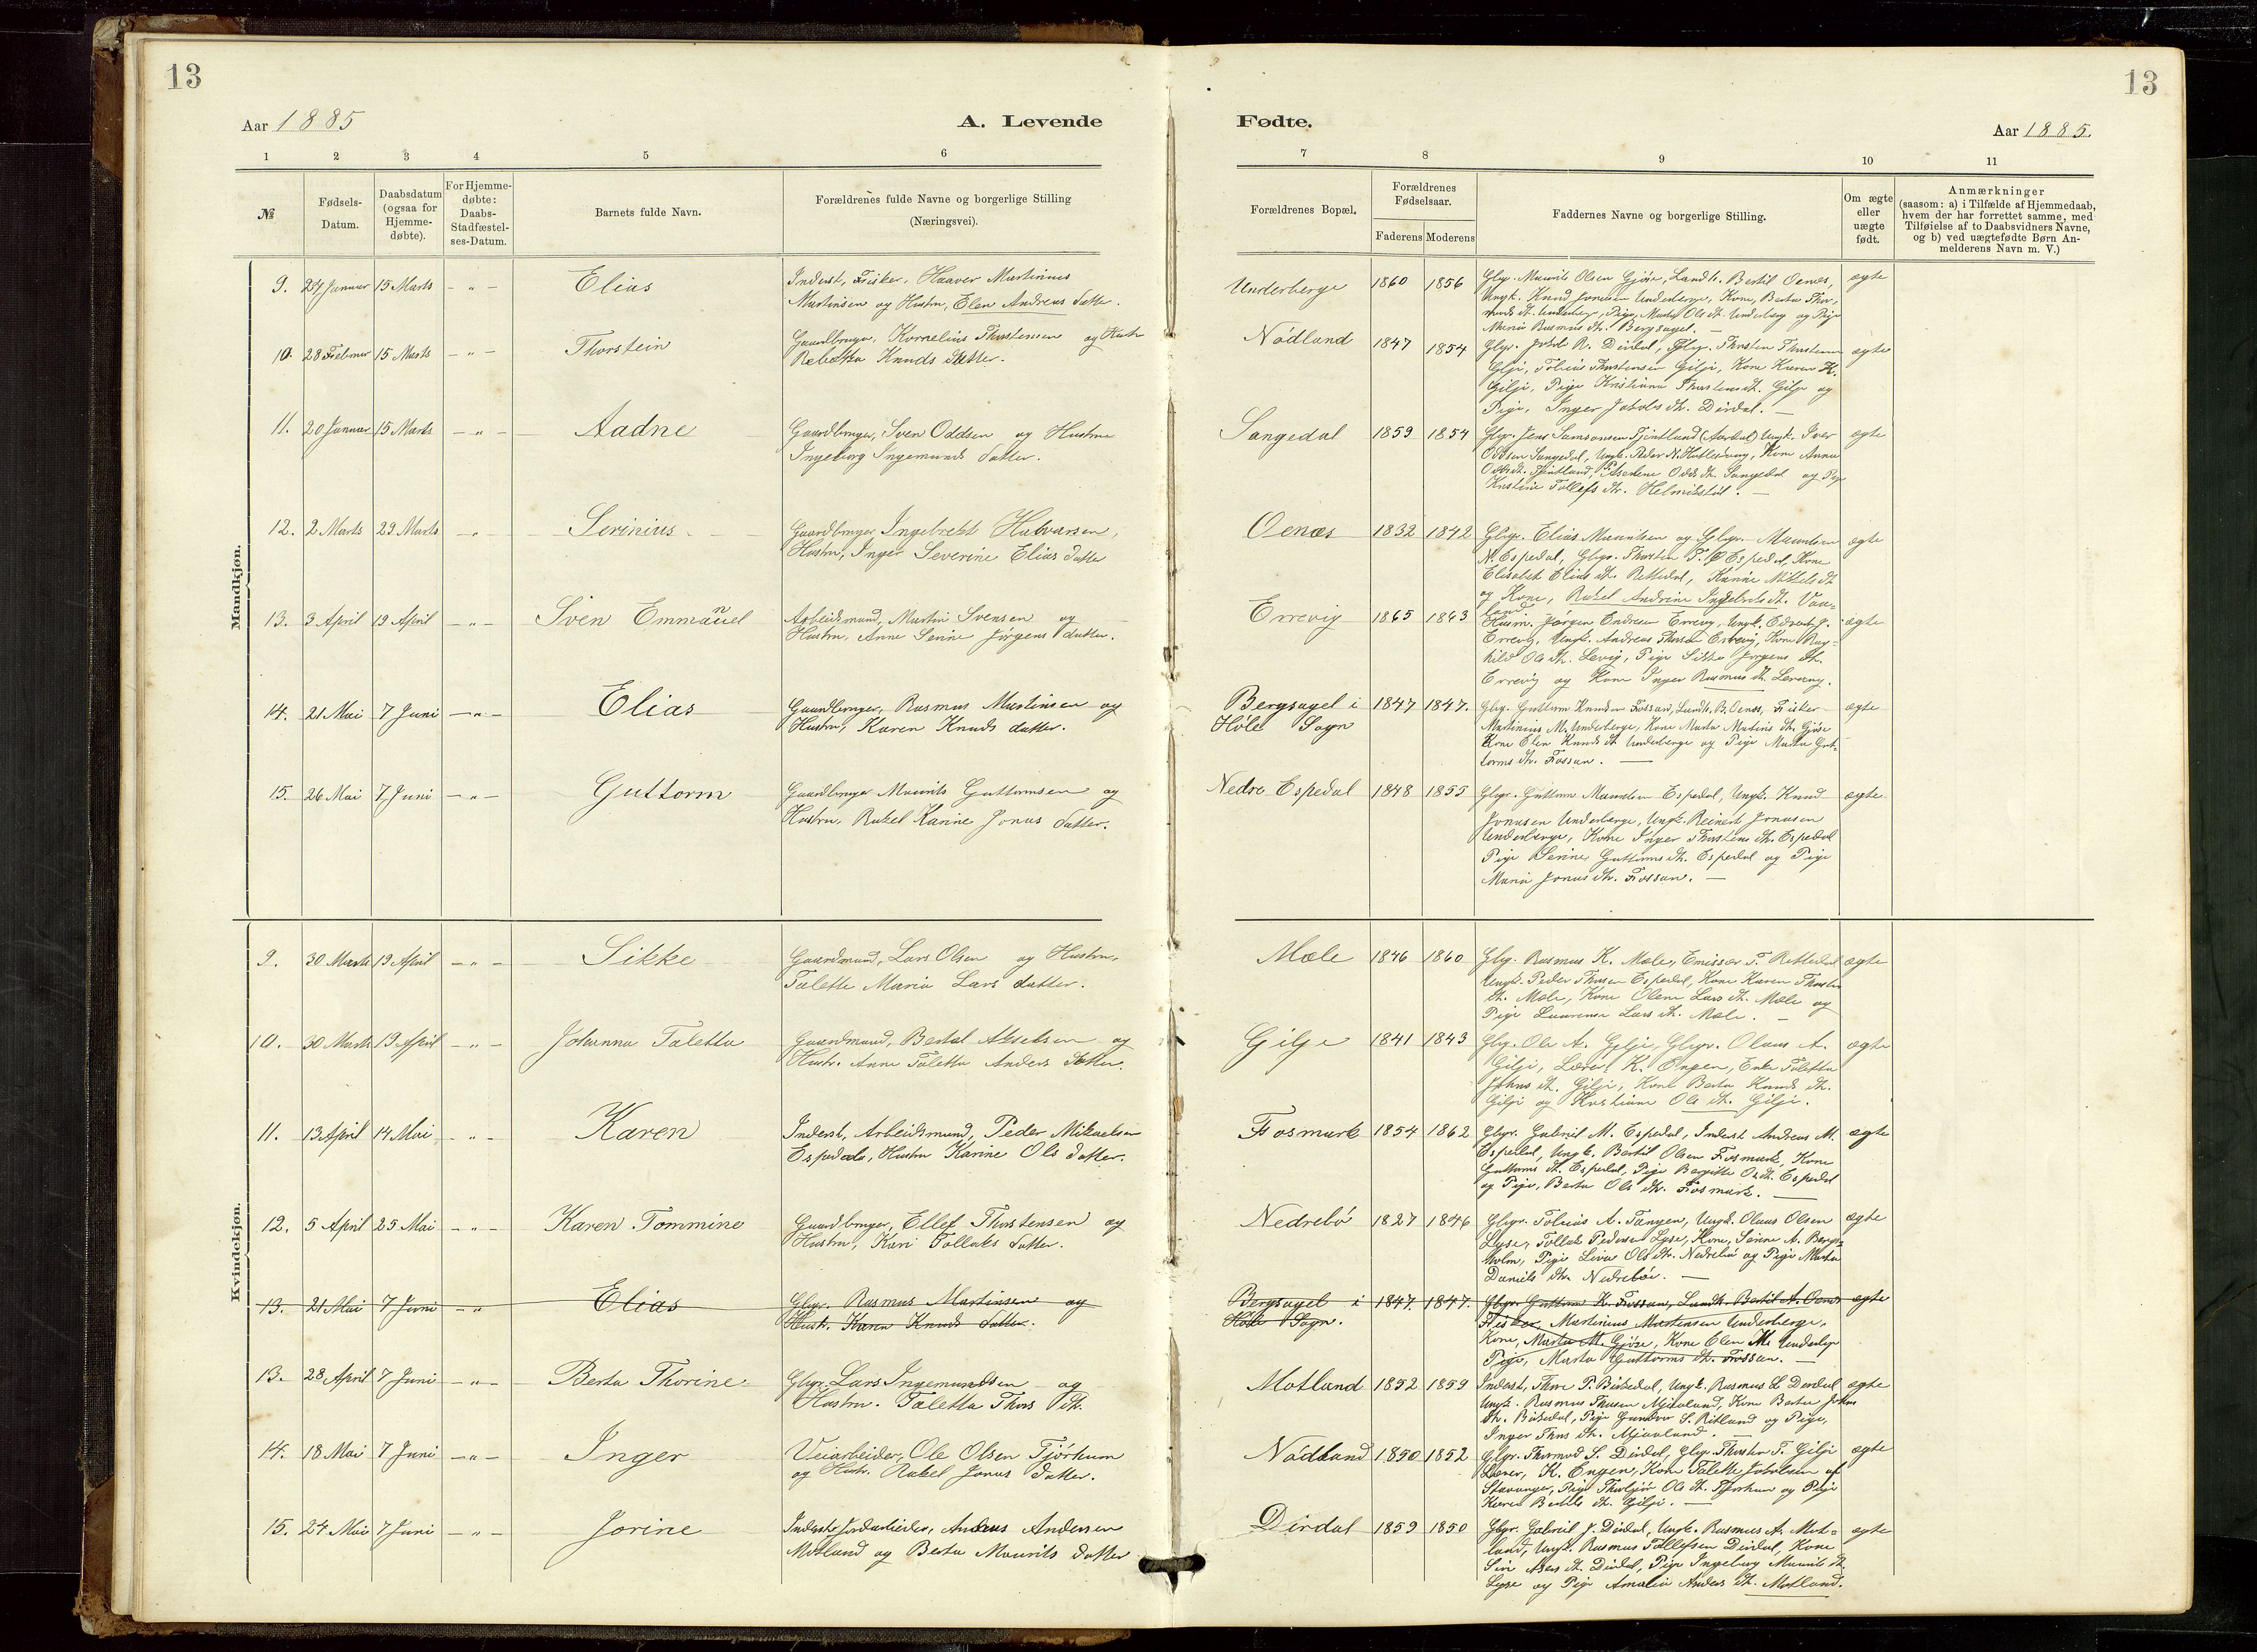 13
13
Aar 1885
A. Levende
Fødte.
Aar 1885.
1 2 3 4 5 6 7 8 9 10 11
№
Fødsels-Datum.
Daabsdatum (ogsaa for Hjemme-døbte).
For Hjemme-døbte: Daabs-Stadfæstel-ses-Datum.
Barnets fulde Navn.
Forældrenes fulde Navne og borgerlige Stilling
(Næringsvei).
Forældrenes Bopæl.
Forældrenes Fødselsaar.
Faderens Moderens
Faddernes Navne og borgerlige Stilling.
Om ægte eller uægte født.
Anmærkninger
(saasom: a) i Tilfælde af Hjemmedaab,
hvem der har forrettet samme, med
Tilføielse af to Daabsvidners Navne,
og b) ved uægtefødte Børn An-
melderens Navn m. V.)
Mandkjøn.
9. 27 Januar 15 Marts - " - Elias
Inderst, Fisker, Haaver Martinius
Martinsen og Hustru, Elen Andreas datter.
Underberge 1860 1856
Gbgr. Maurits Olsen Gjøse, Landh. Bertil Oenæs,
Ungk. Knud Jonasen Underberge, Kone, Berta
ægte
10. 28 Februar 15 Marts - " - Thorstein
Gaardbruger, Kornelius Thorstensen og Hustr
Rebekka Knuds datter.
Nødland 1847 1854
Gbgr. Jakob R. Dirdal, Gbgr. Thorsten Thorstensen
Gilje, Tobias Thorstensen Gilje, Kone Karen K.
Gilje, Pige Kristiane Thorstens dt. Gilje og
Pige, Inger Jakobs dt. Dirdal. -
ægte
11. 20 Januar 15 Marts - " - Aadne
Gaardbruger, Sven Oddsen og Hustru
Ingeborg Ingemunds datter.
Sangedal 1859 1854
Gbgr. Jens Samsonsen Fjintland (Aardal) Ungk. Iver
Oddsen Sangedal, Ungk. Peder N. Kone Anna
Kristine Tollefs dt. Helmikstøl. -
ægte
12. 2 Marts 29 Marts - " - Serinius
Gaardbruger Ingebrekt Halvarsen,
Hustru, Inger Severine Elias datter
Oenæs 1832 1842
Gbgr. Elias Mauritsen og Gbgr. Mauritsen
N. Espedal, Gbgr. Thorsten T. Espedal, Kone
Elisabet Elias dt. Rettedal, Karine Mikkels dt.
og Kone, Rakel Andrine Ingebrets dt. Vaa-
land.
ægte
13. 3 April 19 April - " - Sven Emmanuel
Arbeidsmand, Martin Svensen og
Hustru, Anne Serine Jørgens datter.
Errevig 1865 1843
Husm. Jørgen Endresen Errevig, Ungk. Edvard J.
Errevig, Ungk. Andreas Thorsen Errevig, Kone Rag-
hild Ols dt. Levig, Pige Sikke Jørgens dt.
Errevig og Kone Inger Rasmus dt.
ægte
14. 21 Mai 7 Juni - " - Elias
Gaardbruger, Rasmus Martinsen og
Hustru, Karen Knuds datter.
Bergsagel i
Høle Sogn
1847 1847.
Gbgr. Guttorm Knudsen Fossan, Landh. B. Oenæs, Fisker
Martinius M. Underberge, Kone Marta Gjøse
Kone Elen Knuds dt. Underberge og Pige Marta Gut-
torms dt. Fossan. -
ægte
15. 26 Mai 7 Juni - " - Guttorm
Gaardbruger Maurits Guttormsen og
Hustru, Rakel Karine Jonas datter.
Nedre Espedal 1848 1855
Gbgr. Guttorm Mauritsen Espedal, Ungk. Knud
Jonasen Underberge, Ungk. Reinert Jonasen
Underberge, Kone Inger Thorstens dt. Espedal
Pige Serine Guttorms dt. Espedal og Pige
Maria Jonas dt. Fossan. -
ægte
Kvindekjøn.
9. 30 Marts 19 April - " - Sikke
Gaardmand, Lars Olsen og Hustru,
Talette Maria Lars datter.
Mæle 1846 1860
Gbgr. Rasmus K. Mæle, Emissær T. Rettedal
Ungk. Peder Thorsen Espedal, Kone Karen Thorsten
dt. Mæle, Kone Olene Lars dt. Mæle og
Pige Laurense Lars dt. Mæle. -
ægte
10. 30 Marts 19 April - " - Johanna Taletta
Gaardmand, Bertel Akselsen og
Hustr. Anne Taletta Anders datter.
Gilje 1841 1843
Gbgr. Ole A. Gilje, Gbgr. Olaus A.
Gilje, Lærer K. Engen, Enke Taletta
Johns dt. Gilje, Kone Berta Knuds dt.
Gilje og Kristiane Ols dt. Gilje.
ægte
11. 13 April 14 Mai - " - Karen
Inderst, Arbeidsmand, Peder Mikaelsen
Espedal, Hustru Karine Ols datter.
Fosmark 1854 1862
Gbgr. Gabriel M. Espedal, Inderst Andreas M.
Espedal, Ungk. Bertil Olsen Fosmark, Kone
Guttorms dt. Espedal, Pige Bergitte Os dt. Espedal
og Pige, Berta Ols dt. Fosmark. -
ægte
12. 5 April 25 Mai - " - Karen Tommine
Gaardbruger, Ellef Thorstensen og
Hustru, Kari Tollaks datter.
Nedrebø 1827 1846
Gbgr. Tobias A. Tangen, Ungk. Olaus Olsen
Lyse, Tollak Pedersen Lyse, Kone, Serine A. Bergs-
holm, Pige Livia Ols dt. Nedrebø og Pige Marta
Daniels dt. Nedrebø. -
ægte
13. 21 Mai 7 Juni - " Elias
Gbgr. Rasmus Martinsen og
Hustr. Karen Knuds datter.
Bergsagel i
Høle Sogn.
1847. 1847.
Gbgr. Guttorm K. Fossan, Landh. Bertil A. Oenæs
Fisker, Martinius Martinsen Underberge,
Kone, Marta M. Gjøse, Kone Elen M. Underberge
Pige, Marta Guttorms dt. Fossan. -
ægte
13. 28 April 7 Juni - " - Berta Thorine
Gbgr. Lars Ingemundsen og
Hustru. Taletta Thors dt.
Motland 1852 1859
Inderst, Thore P. Birkedal, Ungk. Rasmus L Dirdal
Ungk. Rasmus Thorsen Mjaaland, Kone Berta Johns
dt. Birkedal, Pige Gundvor S. Ritland og Pige,
Inger Thors dt. Mjaaland. -
ægte
14. 18 Mai 7 Juni - " - Inger
Veiarbeider, Ole Olsen Tjørhum
og Hustr. Rakel Jonas datter.
Nødland 1850 1852
Gbgr. Thormod S. Dirdal, Gbgr. Thorsten T. Gilje
Lærer, K. Engen, Kone Talette Jakobsen af
Stavanger, Pige Ols dt. Tjørhum og Pige
Karen Bertels dt. Gilje. -
ægte
15. 24 Mai 7 Juni - " - Jorine
Inderst Jordarbeider, Andreas Andersen
Motland og Berta Maurits datter
Dirdal 1859 1850
Gbgr. Gabriel J. Dirdal, Ungk. Rasmus A. Mot-
land, Ungk. Rasmus Tollefsen Dirdal, Kone
Siri dt. Dirdal, Pige Ingeborg Maurits dt.
Lyse og Pige Amalia Anders dt. Motland.
ægte